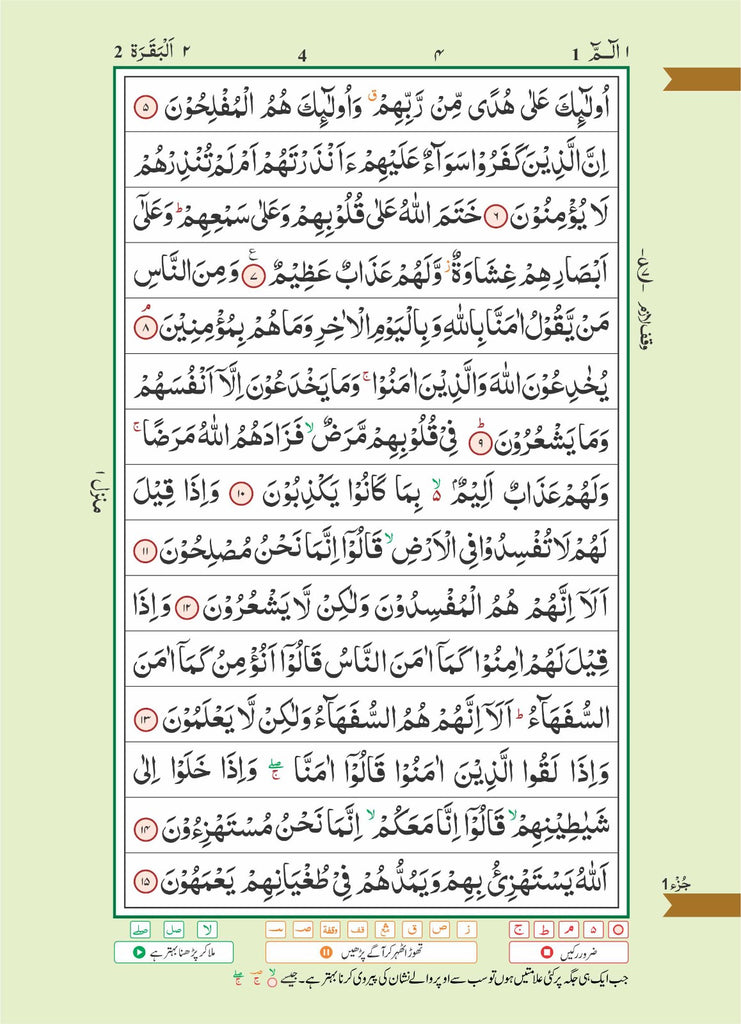 ١ الٓـمّٓ 1 ۴ 4 ٢ اَلْبَقَرَة 2
اُولٰٓئِكَ عَلٰى هُدًى مِّنْ رَّبِّهِمْ ۗ وَاُولٰٓئِكَ هُمُ الْمُفْلِحُوْنَ ۵
اِنَّ الَّذِيْنَ كَفَرُوْا سَوَآءٌ عَلَيْهِمْ ءَاَنْذَرْتَهُمْ اَمْ لَمْ تُنْذِرْهُمْ
لَا يُؤْمِنُوْنَ ۶ خَتَمَ اللّٰهُ عَلٰى قُلُوْبِهِمْ وَعَلٰى سَمْعِهِمْ ؕ وَعَلٰٓى
اَبْصَارِهِمْ غِشَاوَةٌ ز وَّلَهُمْ عَذَابٌ عَظِيْمٌ ع ۷ وَمِنَ النَّاسِ
مَنْ يَّقُوْلُ اٰمَنَّا بِاللّٰهِ وَبِالْيَوْمِ الْاٰخِرِ وَمَا هُمْ بِمُؤْمِنِيْنَ م ۸
يُخٰدِعُوْنَ اللّٰهَ وَالَّذِيْنَ اٰمَنُوْا ۚ وَمَا يَخْدَعُوْنَ اِلَّآ اَنْفُسَهُمْ
وَمَا يَشْعُرُوْنَ ؕ ۹ فِيْ قُلُوْبِهِمْ مَّرَضٌ ۙ فَزَادَهُمُ اللّٰهُ مَرَضًا ۚ
وَلَهُمْ عَذَابٌ اَلِيْمٌۢ ۙ۵ بِمَا كَانُوْا يَكْذِبُوْنَ ۱۰ وَاِذَا قِيْلَ
لَهُمْ لَا تُفْسِدُوْا فِى الْاَرْضِ ۙ قَالُوْٓا اِنَّمَا نَحْنُ مُصْلِحُوْنَ ۱۱
اَلَآ اِنَّهُمْ هُمُ الْمُفْسِدُوْنَ وَلٰكِنْ لَّا يَشْعُرُوْنَ ۱۲ وَاِذَا
قِيْلَ لَهُمْ اٰمِنُوْا كَمَآ اٰمَنَ النَّاسُ قَالُوْٓا اَنُؤْمِنُ كَمَآ اٰمَنَ
السُّفَهَآءُ ؕ اَلَآ اِنَّهُمْ هُمُ السُّفَهَآءُ وَلٰكِنْ لَّا يَعْلَمُوْنَ ۱۳
وَاِذَا لَقُوا الَّذِيْنَ اٰمَنُوْا قَالُوْٓا اٰمَنَّا ۖۚ وَاِذَا خَلَوْا اِلٰى
شَيٰطِيْنِهِمْ ۙ قَالُوْٓا اِنَّا مَعَكُمْ ۙ اِنَّمَا نَحْنُ مُسْتَهْزِءُوْنَ ۱۴
اَللّٰهُ يَسْتَهْزِئُ بِهِمْ وَيَمُدُّهُمْ فِيْ طُغْيَانِهِمْ يَعْمَهُوْنَ ۱۵
وقف لازم
منزل ۱
جُزْء 1
○ ۵ م ط ج ز ص ق قف وقفة لا صل صلے
ضرور رکیں تھوڑا ٹھہر کر آگے پڑھیں ملا کر پڑھنا بہتر ہے
جب ایک ہی جگہ پر کئی علامتیں ہوں تو سب سے اوپر والے نشان کی پیروی کرنا بہتر ہے۔ جیسے